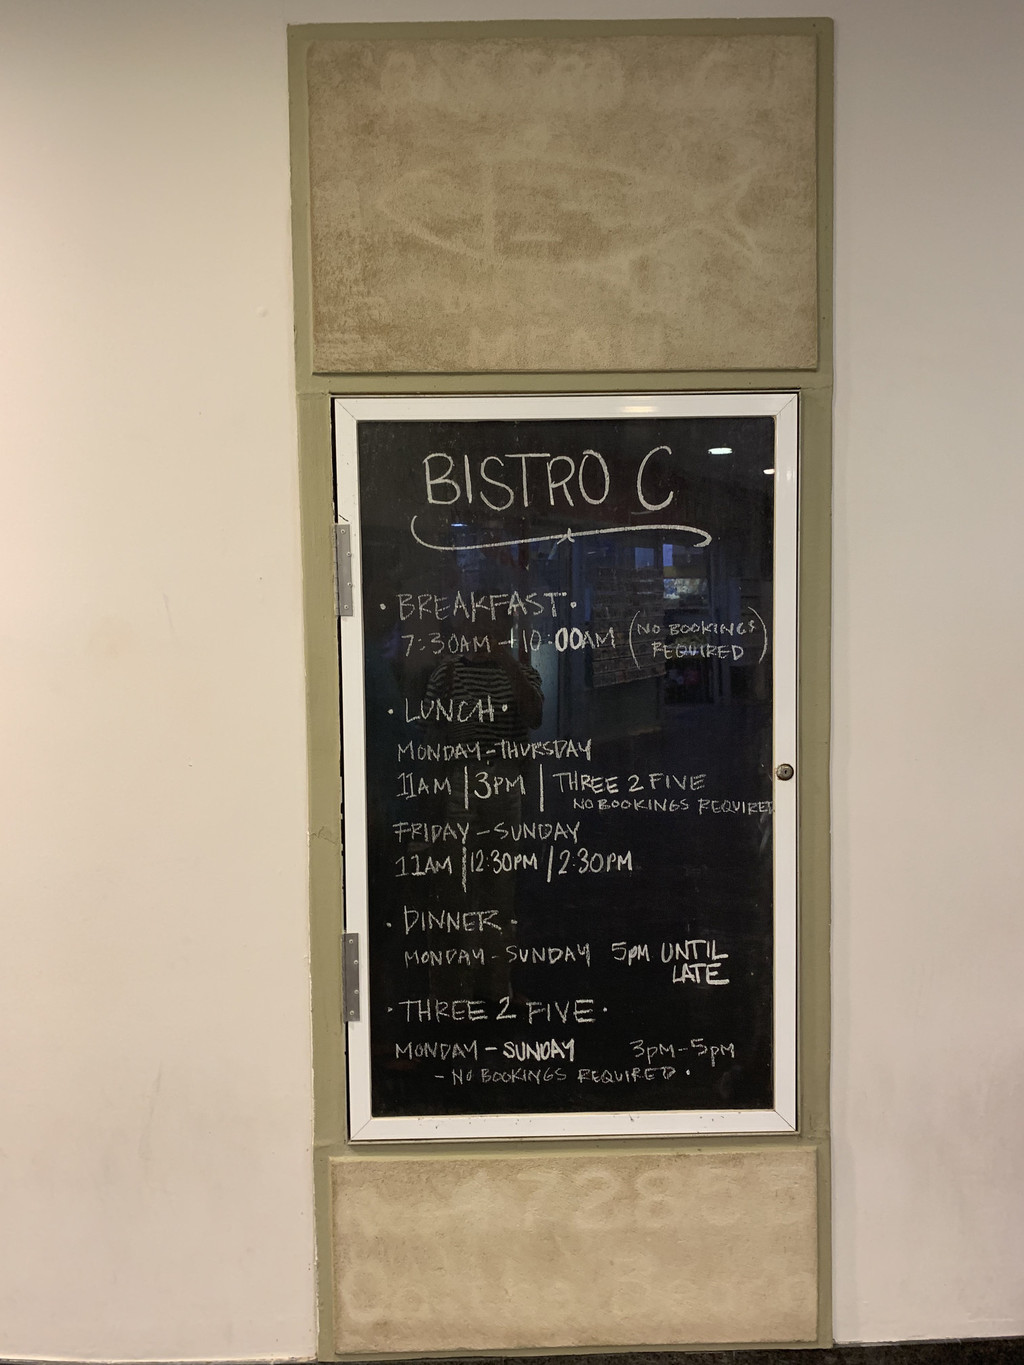 BISTRO C
MENU
BISTRO C
• BREAKFAST •
7:30AM → 10:00AM (NO BOOKINGS
REQUIRED)
• LUNCH •
MONDAY - THURSDAY
11AM | 3PM | THREE 2 FIVE
NO BOOKINGS REQUIRED
FRIDAY - SUNDAY
11AM | 12:30PM / 2:30PM
• DINNER •
MONDAY - SUNDAY 5PM UNTIL
LATE
• THREE 2 FIVE •
MONDAY - SUNDAY 3PM - 5PM
- NO BOOKINGS REQUIRED •